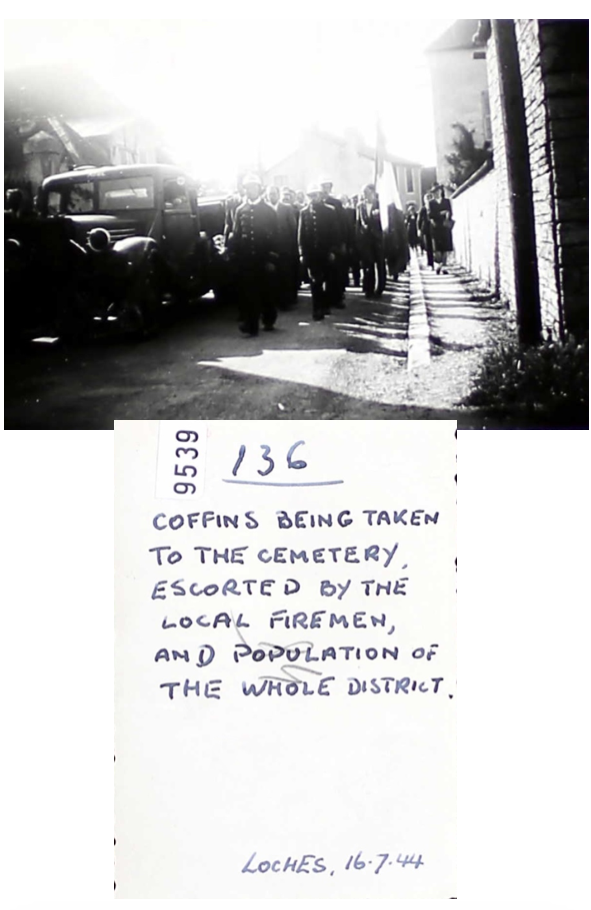 9539
136
COFFINS BEING TAKEN
TO THE CEMETERY,
ESCORTED BY THE
LOCAL FIREMEN,
AND POPULATION OF
THE WHOLE DISTRICT.
LOCHES, 16·7·44